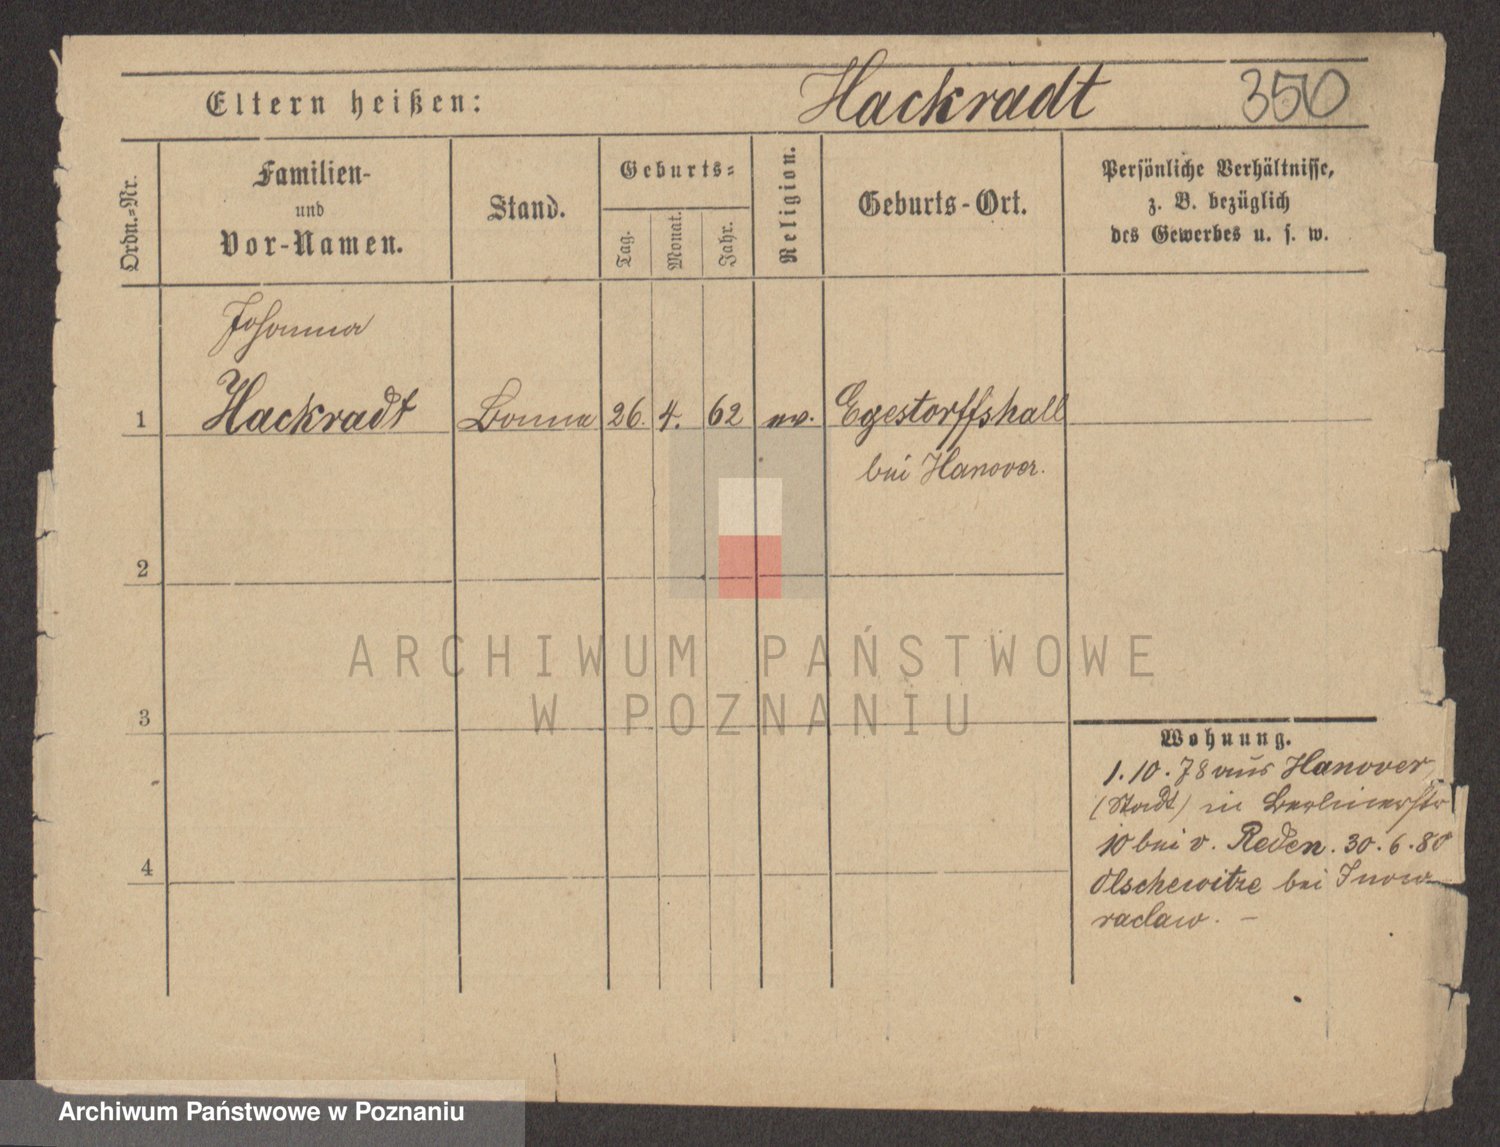 Eltern heißen: Hackradt 350
Ordn.=Nr.
Familien-
und
Vor-Namen.
Stand.
Geburts=
Tag.
Monat.
Jahr.
Religion.
Geburts-Ort.
Persönliche Verhältnisse,
z. B. bezüglich
des Gewerbes u. s. w.
Johanna
1 Hackradt Bonne 26. 4. 62 ev. Egestorffshall
bei Hanover.
2
3
4
Wohnung.
1.10.78 aus Hanover
(Stadt) in Berlinerstr
10 bei v. Reden. 30.6.80
Olschewitze bei Inow
raclaw. –
ARCHIWUM PAŃSTWOWE
W POZNANIU
Archiwum Państwowe w Poznaniu